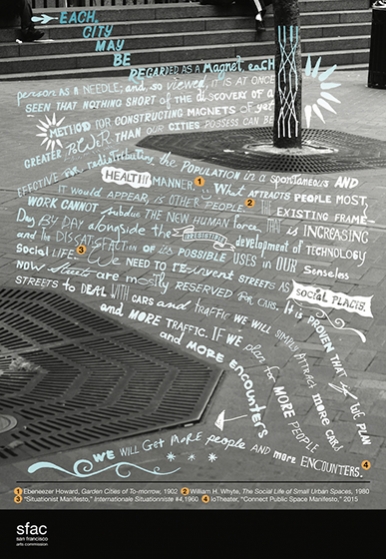 EACH
CITY
MAY
BE
REGARDED AS a Magnet, eacH
person AS A NEEDLE; and, so viewed, IT IS AT ONCE
SEEN THAT NOTHING SHORT of THE DISCOVERY OF A
METHOD FOR CONSTRUCTING MAGNETS OF yet
GREATER POWER THAN OUR CITIES POSSESS CAN BE
EFFECTIVE for redistributing the POPULATION in a spontaneous AND
HEALTHY MANNER. 1 What ATTRACTS PEOPLE MOST,
IT WOULD APPEAR, IS OTHER PEOPLE. 2 THE EXISTING FRAME-
WORK CANNOT subdue THE NEW HUMAN force THAT IS INCREASING
Day BY DAY alongside the irresistible development of TECHNOLOGY
and The DISSATISFACTION OF ITS POSSIBLE USES in OUR Senseless
Social LIFE. 3 We NEED TO reinvent STREETS AS SOCIAL PLACES.
NOW Streets are mostly RESERVED for CARS. It is PROVEN THAT if WE PLAN
STREETS to DEAL WITH CARS and traffic WE WILL SIMPLY ATTRACT more CARS
and MORE TRAFFIC. IF WE plan for MORE PEOPLE
and MORE encounters
WE WILL GeT MoRE people AND more ENCOUNTERS. 4
1 Ebeneezer Howard, Garden Cities of To-morrow, 1902 2 William H. Whyte, The Social Life of Small Urban Spaces, 1980
3 "Situationist Manifesto," Internationale Situationniste #4, 1960 4 IoTheater, "Connect Public Space Manifesto," 2015
sfac
san francisco
arts commission